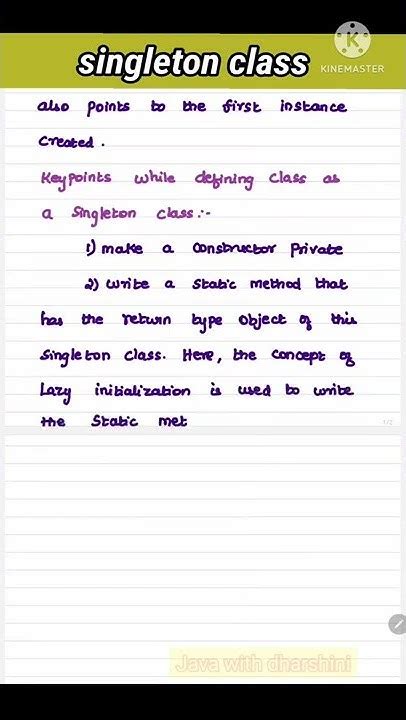 singleton class
KINEMASTER
also points to the first instance
created.
Keypoints while defining class as
a singleton class:-
1) make a constructor private
2) write a static method that
has the return type object of this
singleton class. Here, the concept of
Lazy initialization is used to write
the static met
1/2
Java with dharshini